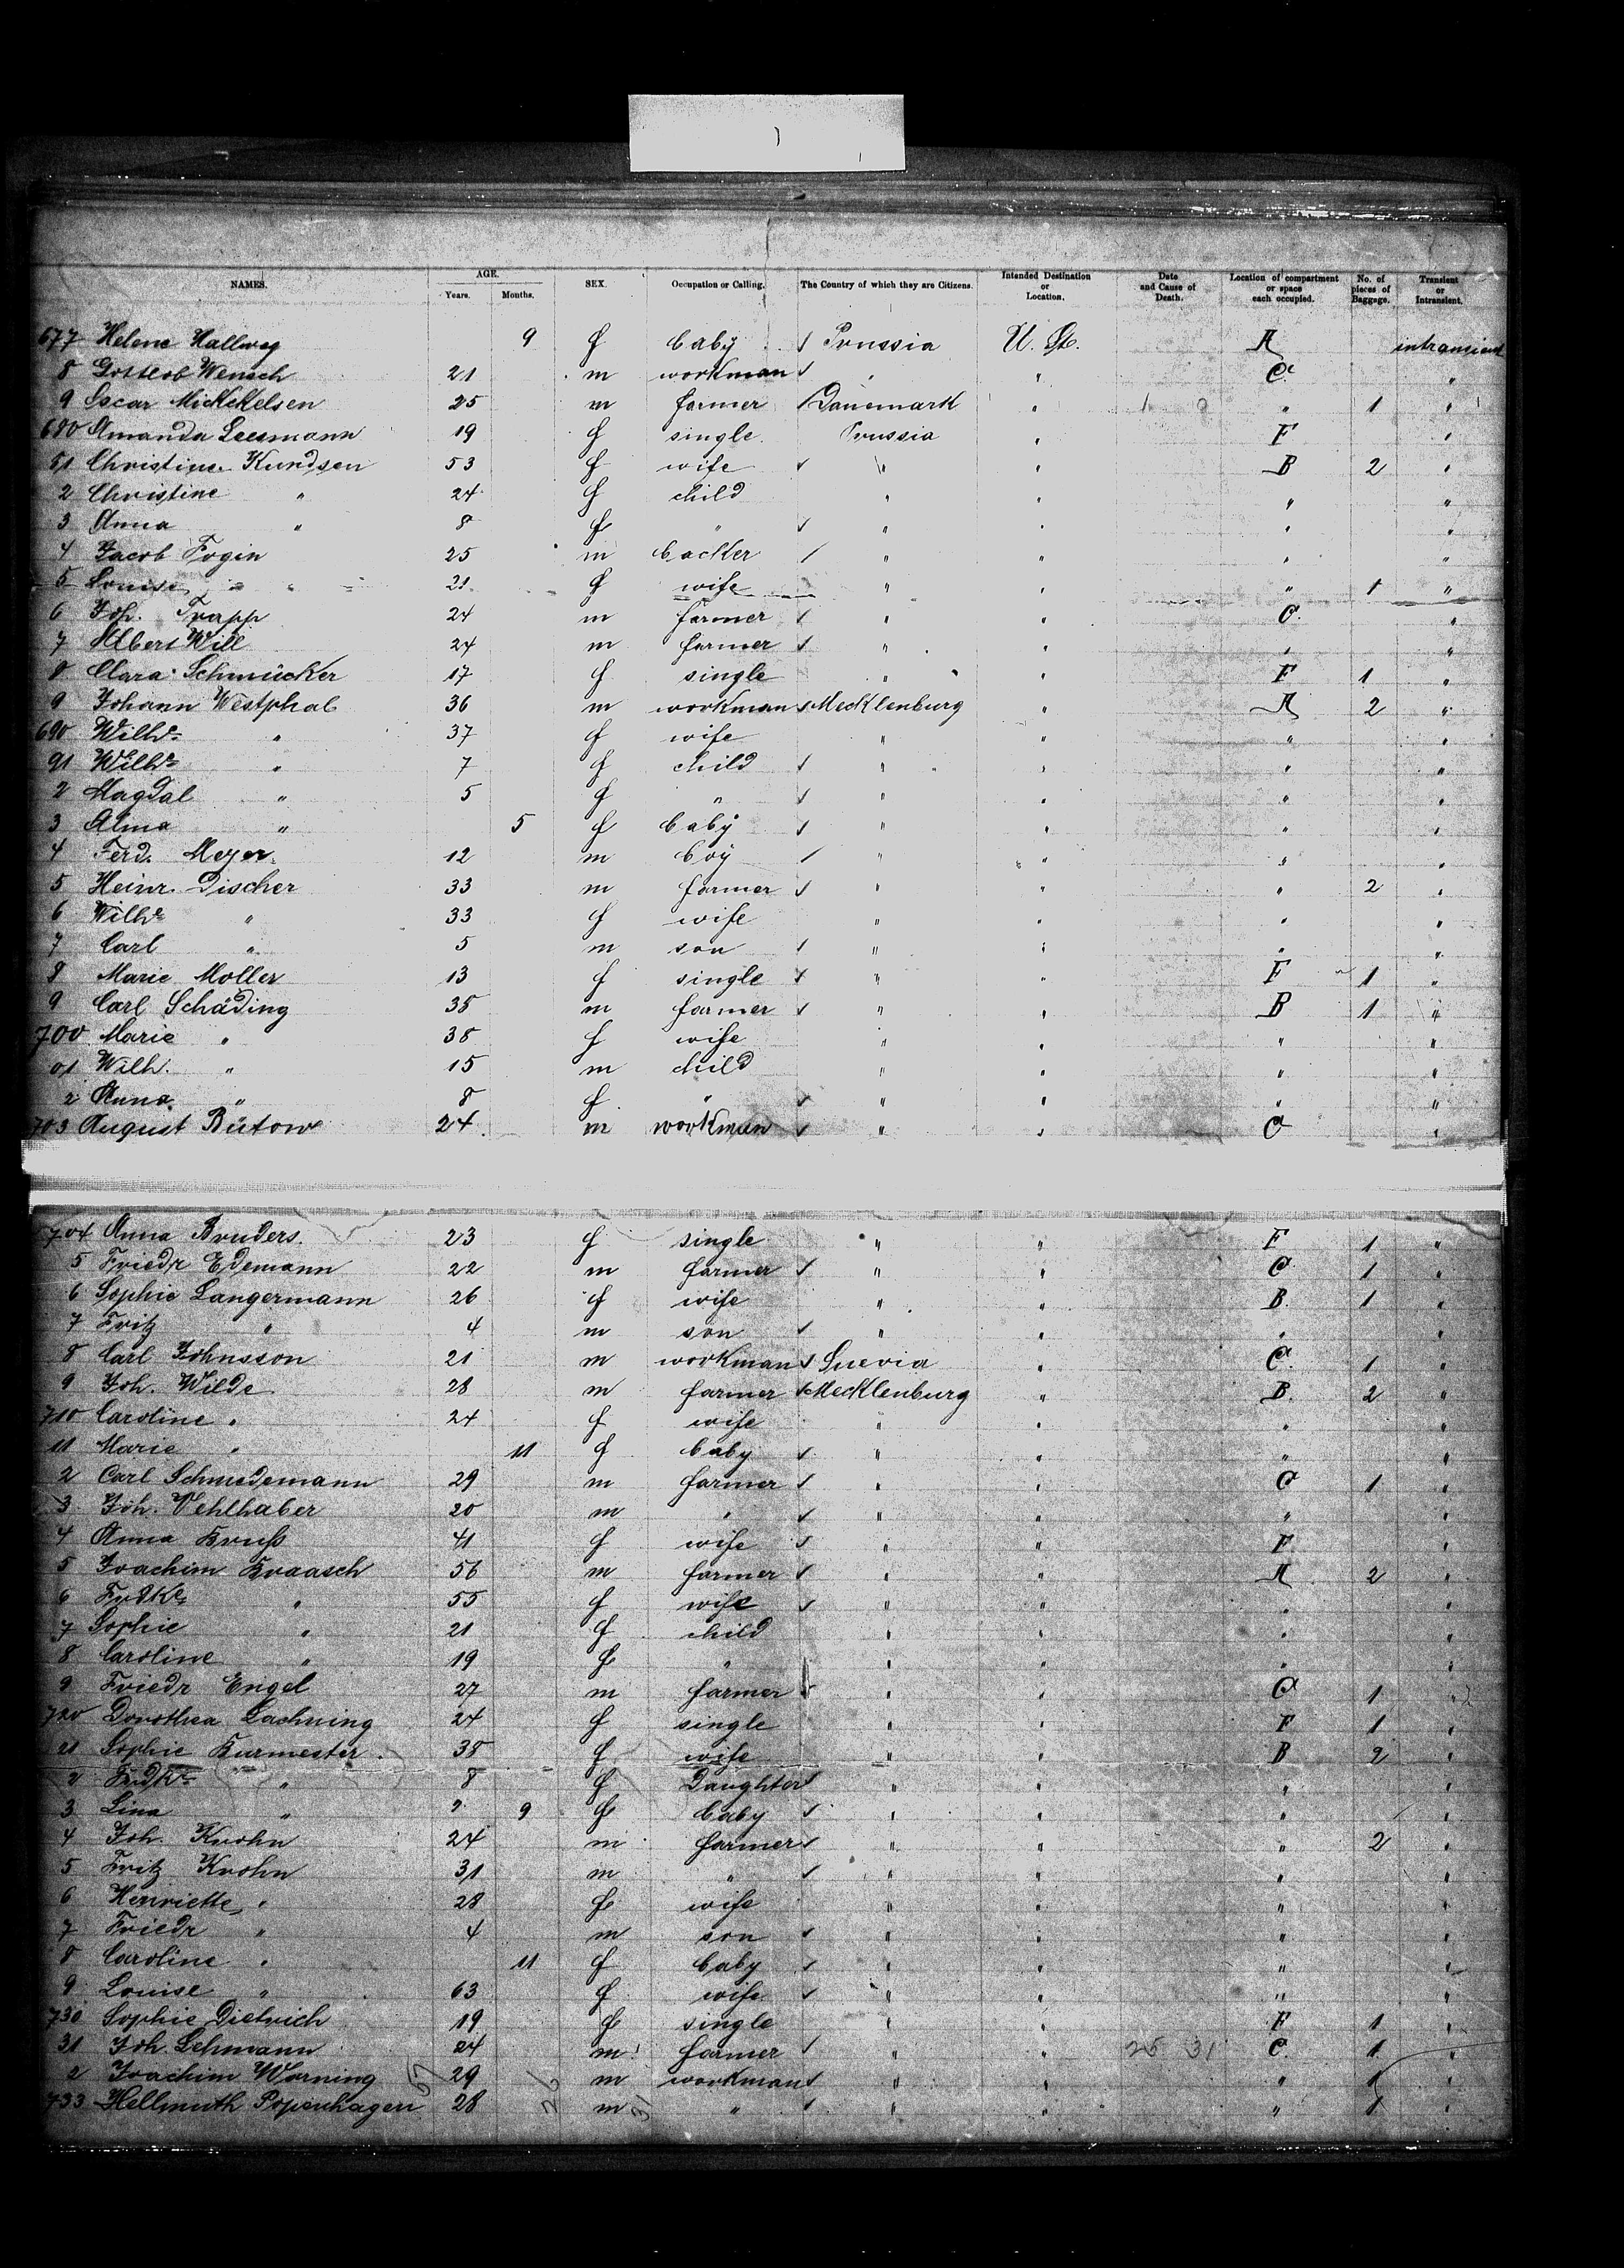 NAMES. AGE. Years. Months. SEX. Occupation or Calling. The Country of which they are Citizens. Intended Destination or Location. Date and Cause of Death. Location of compartment or space each occupied. No. of pieces of Baggage. Transient or Intransient.
677 Helene Hallweg 9 f baby ✓ Prussia U. St. A intransient
8 Gottlob Wensch 21 m workman ✓ " " C "
9 Oscar Mickelsen 25 m farmer Danemark " " 1 "
680 Amanda Leesmann 19 f single Prussia " F "
81 Christine Kundsen 53 f wife ✓ " " B 2 "
2 Christine " 24 f child " " " "
3 Anna " 8 f " ✓ " " " "
4 Jacob Fogin 25 m backer ✓ " " " "
5 Louise " 21 f wife " " " 1 "
6 Joh. Trapp 24 m farmer ✓ " " C. "
7 Albert Will 24 m farmer ✓ " " " "
8 Clara Schmücker 17 f single " " F 1 "
9 Johann Westphal 36 m workman ✓ Mecklenburg " A 2 "
690 Wilhe " 37 f wife " " " "
91 Wilhe " 7 f child ✓ " " " "
2 Magdal " 5 f " ✓ " " " "
3 Alma " 5 f baby ✓ " " " "
4 Ferd. Meyer 12 m boy ✓ " " " "
5 Heinr. Discher 33 m farmer ✓ " " " 2 "
6 Wilhe " 33 f wife " " " "
7 Carl " 5 m son ✓ " " " "
8 Marie Moller 13 f single ✓ " " F 1 "
9 Carl Schäding 38 m farmer ✓ " " B 1 "
700 Marie " 38 f wife " " " "
01 Wilh. " 15 m child " " " "
2 Anna " 8 f " ✓ " " " "
703 August Bütow 24 m workman ✓ " " C "
704 Anna Bruders 23 f single " " F 1 "
5 Friedr Edemann 22 m farmer ✓ " " C 1 "
6 Sophie Langermann 26 f wife " " B. 1 "
7 Fritz " 4 m son ✓ " " " "
8 Carl Johnsson 21 m workman ✓ Suevia " C. 1 "
9 Joh. Wilde 28 m farmer ✓ Mecklenburg " B. 2 "
710 Caroline " 24 f wife " " " "
11 Marie " 11 f baby ✓ " " " "
2 Carl Schmedemann 29 m farmer ✓ " " C 1 "
3 Joh. Vehlhaber 20 m " ✓ " " " "
4 Anna Kruß 41 f wife ✓ " " F "
5 Joachim Braasch 56 m farmer ✓ " " A 2 "
6 Frdke " 55 f wife ✓ " " " "
7 Sophie " 21 f child " " " "
8 Caroline " 19 f " " " " "
9 Friedr Engel 27 m farmer ✓ " " C 1 "
720 Dorothea Lachning 24 f single " " F 1 "
21 Sophie Burmester 38 f wife " " B 2 "
2 Frdke " 8 f Daughter ✓ " " " "
3 Lina " 9 f baby ✓ " " " "
4 Joh. Krohn 24 m farmer ✓ " " " 2 "
5 Fritz Krohn 31 m " ✓ " " " "
6 Henriette " 28 f wife " " " "
7 Friedr " 4 m son ✓ " " " "
8 Caroline " 11 f baby ✓ " " " "
9 Louise " 63 f wife ✓ " " " "
730 Sophie Dietrich 19 f single " " F 1 "
31 Joh. Lehmann 24 m farmer ✓ " " 25 31 C. 1 "
2 Joachim Worning 29 m workman ✓ " " " 1 "
733 Hellmuth Popenhagen 28 m " ✓ " " " 1 "